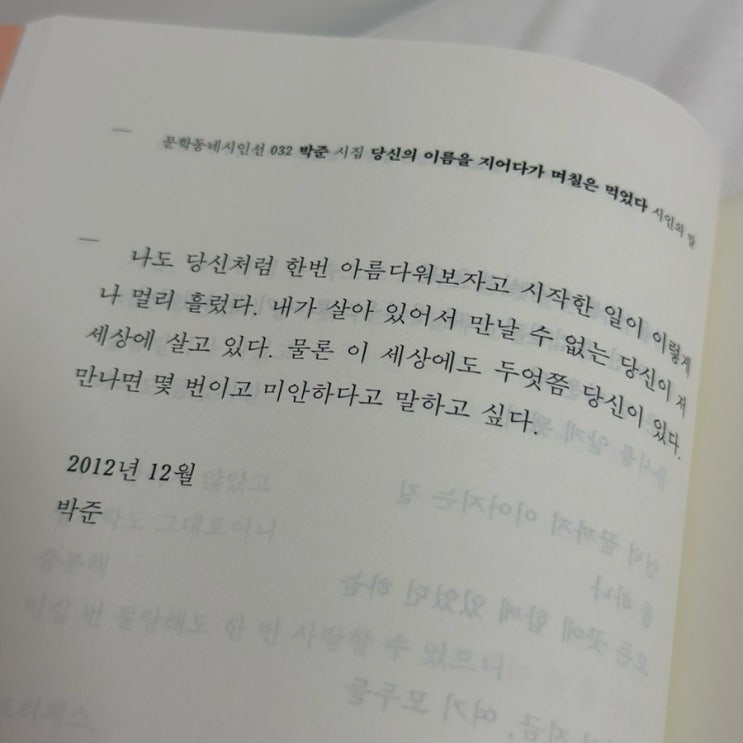 문학동네시인선 032 박준 시집 당신의 이름을 지어다가 며칠은 먹었다 시인의 말
나도 당신처럼 한번 아름다워보자고 시작한 일이 이렇게
나 멀리 흘렀다. 내가 살아 있어서 만날 수 없는 당신이 저
세상에 살고 있다. 물론 이 세상에도 두엇쯤 당신이 있다.
만나면 몇 번이고 미안하다고 말하고 싶다.
2012년 12월
박준
않았고
그대로이니
충분해
이십 번 절망해도 한 번 사랑할 수 있으니